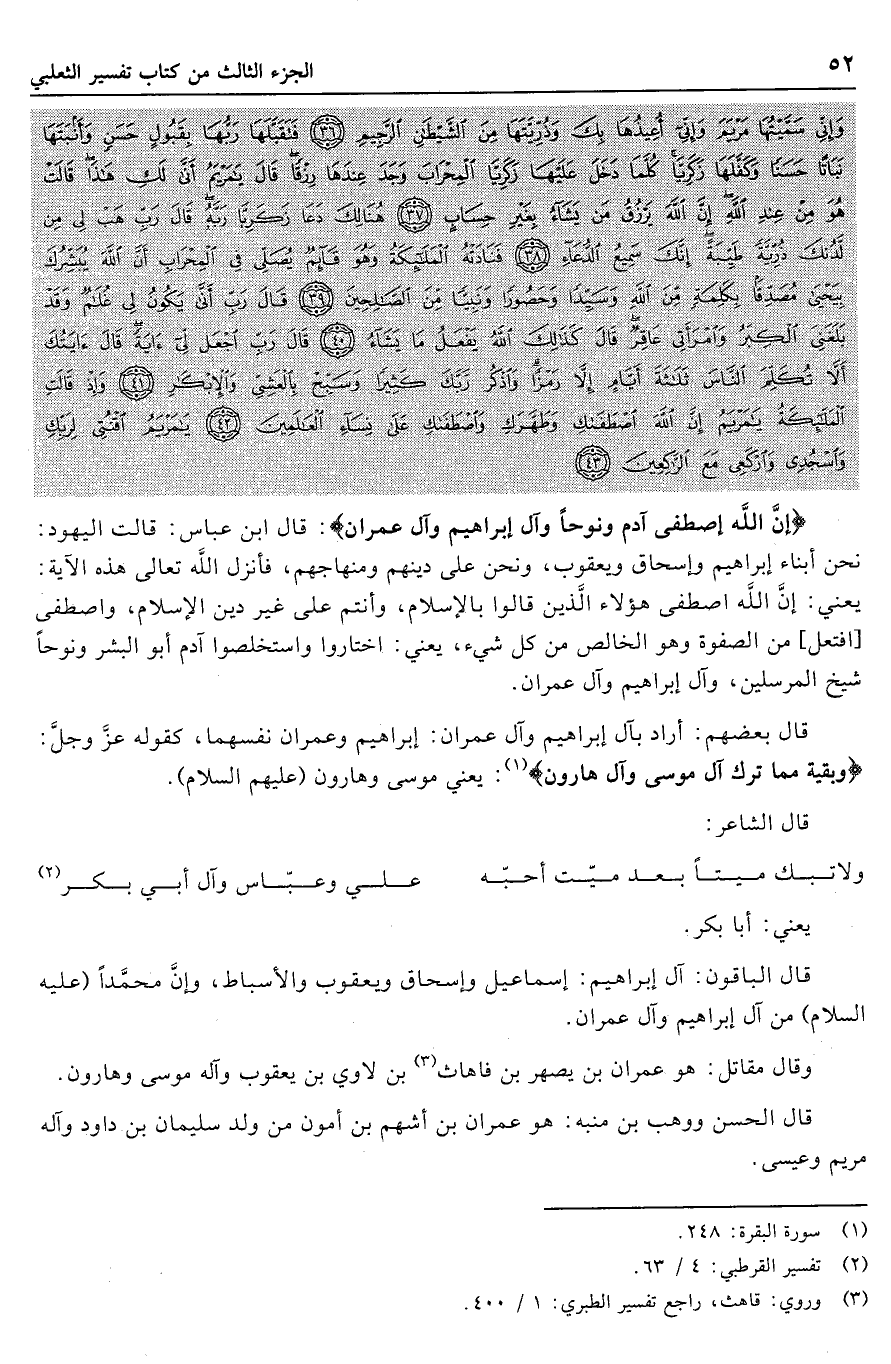 ٥٢ الجزء الثالث من كتاب تفسير الثعلبي
وَإِنِّي سَمَّيْتُهَا مَرْيَمَ وَإِنِّي أُعِيذُهَا بِكَ وَذُرِّيَّتَهَا مِنَ الشَّيْطَانِ الرَّجِيمِ ﴿٣٦﴾ فَتَقَبَّلَهَا رَبُّهَا بِقَبُولٍ حَسَنٍ وَأَنْبَتَهَا
نَبَاتًا حَسَنًا وَكَفَّلَهَا زَكَرِيَّا كُلَّمَا دَخَلَ عَلَيْهَا زَكَرِيَّا الْمِحْرَابَ وَجَدَ عِنْدَهَا رِزْقًا قَالَ يَٰمَرْيَمُ أَنَّى لَكِ هَٰذَا قَالَتْ
هُوَ مِنْ عِنْدِ اللَّهِ إِنَّ اللَّهَ يَرْزُقُ مَنْ يَشَاءُ بِغَيْرِ حِسَابٍ ﴿٣٧﴾ هُنَالِكَ دَعَا زَكَرِيَّا رَبَّهُ قَالَ رَبِّ هَبْ لِي مِنْ
لَدُنْكَ ذُرِّيَّةً طَيِّبَةً إِنَّكَ سَمِيعُ الدُّعَاءِ ﴿٣٨﴾ فَنَادَتْهُ الْمَلَٰئِكَةُ وَهُوَ قَائِمٌ يُصَلِّي فِي الْمِحْرَابِ أَنَّ اللَّهَ يُبَشِّرُكَ
بِيَحْيَىٰ مُصَدِّقًا بِكَلِمَةٍ مِنَ اللَّهِ وَسَيِّدًا وَحَصُورًا وَنَبِيًّا مِنَ الصَّٰلِحِينَ ﴿٣٩﴾ قَالَ رَبِّ أَنَّى يَكُونُ لِي غُلَٰمٌ وَقَدْ
بَلَغَنِيَ الْكِبَرُ وَامْرَأَتِي عَاقِرٌ قَالَ كَذَٰلِكَ اللَّهُ يَفْعَلُ مَا يَشَاءُ ﴿٤٠﴾ قَالَ رَبِّ اجْعَلْ لِي ءَايَةً قَالَ ءَايَتُكَ
أَلَّا تُكَلِّمَ النَّاسَ ثَلَٰثَةَ أَيَّامٍ إِلَّا رَمْزًا وَاذْكُرْ رَبَّكَ كَثِيرًا وَسَبِّحْ بِالْعَشِيِّ وَالْإِبْكَٰرِ ﴿٤١﴾ وَإِذْ قَالَتِ
الْمَلَٰئِكَةُ يَٰمَرْيَمُ إِنَّ اللَّهَ اصْطَفَىٰكِ وَطَهَّرَكِ وَاصْطَفَىٰكِ عَلَىٰ نِسَاءِ الْعَٰلَمِينَ ﴿٤٢﴾ يَٰمَرْيَمُ اقْنُتِي لِرَبِّكِ
وَاسْجُدِي وَارْكَعِي مَعَ الرَّٰكِعِينَ ﴿٤٣﴾
﴿إنَّ اللَّه إصطفى آدم ونوحاً وآل إبراهيم وآل عمران﴾: قال ابن عباس: قالت اليهود:
نحن أبناء إبراهيم وإسحاق ويعقوب، ونحن على دينهم ومنهاجهم، فأنزل اللَّه تعالى هذه الآية:
يعني: إنَّ اللَّه اصطفى هؤلاء الَّذين قالوا بالإسلام، وأنتم على غير دين الإسلام، واصطفى
[افتعل] من الصفوة وهو الخالص من كل شيء، يعني: اختاروا واستخلصوا آدم أبو البشر ونوحاً
شيخ المرسلين، وآل إبراهيم وآل عمران.
قال بعضهم: أراد بآل إبراهيم وآل عمران: إبراهيم وعمران نفسهما، كقوله عزَّ وجلَّ:
﴿وبقية مما ترك آل موسى وآل هارون﴾(١): يعني موسى وهارون (عليهم السلام).
قال الشاعر:
ولاتبك ميتاً بعد ميّت أحبّه علي وعبّاس وآل أبي بكر(٢)
يعني: أبا بكر.
قال الباقون: آل إبراهيم: إسماعيل وإسحاق ويعقوب والأسباط، وإنَّ محمَّداً (عليه
السلام) من آل إبراهيم وآل عمران.
وقال مقاتل: هو عمران بن يصهر بن فاهاث(٣) بن لاوي بن يعقوب وآله موسى وهارون.
قال الحسن ووهب بن منبه: هو عمران بن أشهم بن أمون من ولد سليمان بن داود وآله
مريم وعيسى.
(١) سورة البقرة: ٢٤٨.
(٢) تفسير القرطبي: ٤ / ٦٣.
(٣) وروي: قاهث، راجع تفسير الطبري: ١ / ٤٠٠.